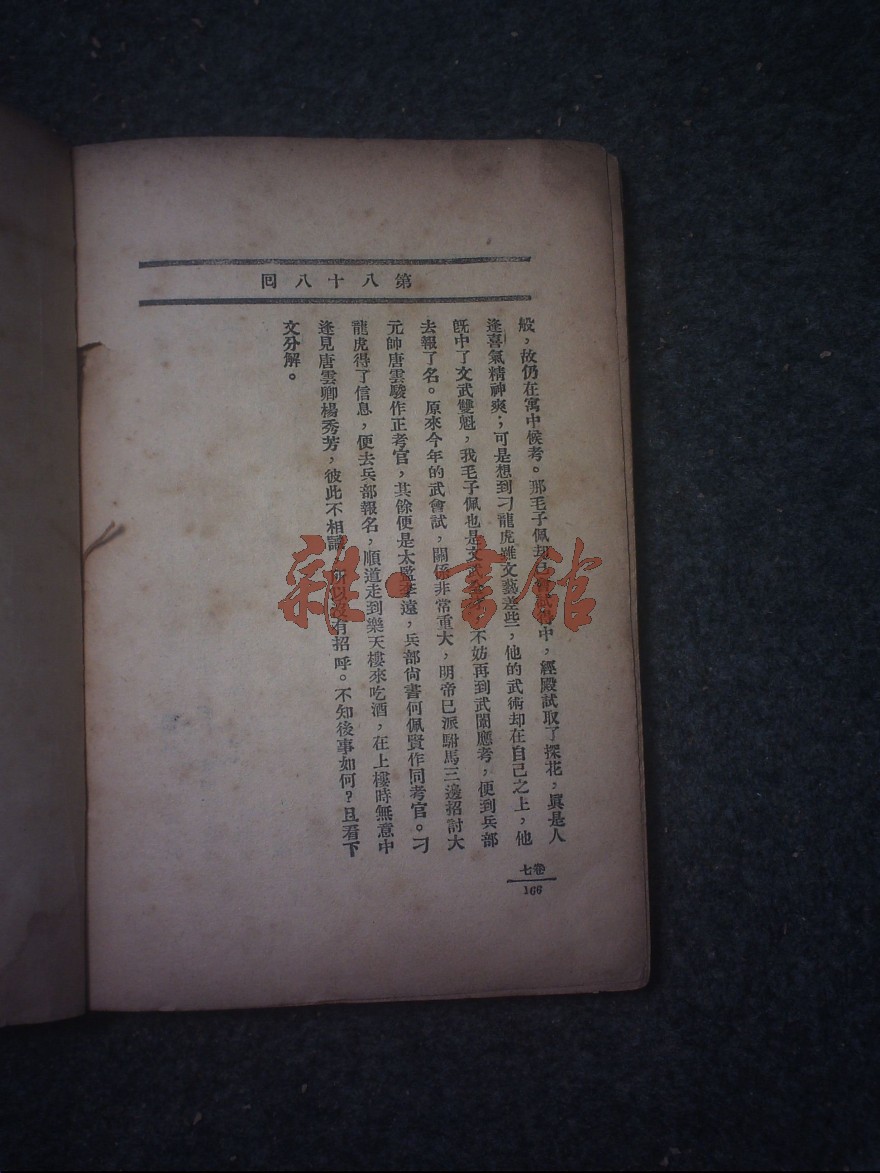 第八十八回
般，故仍在寓中候考。那毛子佩却已中，經殿試取了探花，眞是人
逢喜氣精神爽；可是想到刁龍虎雖文藝差些，他的武術却在自己之上，他
旣中了文武雙魁，我毛子佩也是文武不妨再到武闈應考，便到兵部
去報了名。原來今年的武會試，關係非常重大，明帝已派駙馬三邊招討大
元帥唐雲駿作正考官，其餘便是太監李遠，兵部尙書何佩賢作同考官。刁
龍虎得了信息，便去兵部報名，順道走到樂天樓來吃酒，在上樓時無意中
逢見唐雲卿楊秀芳，彼此不相識，所以沒有招呼。不知後事如何？且看下
文分解。
卷七
166
雜·書館